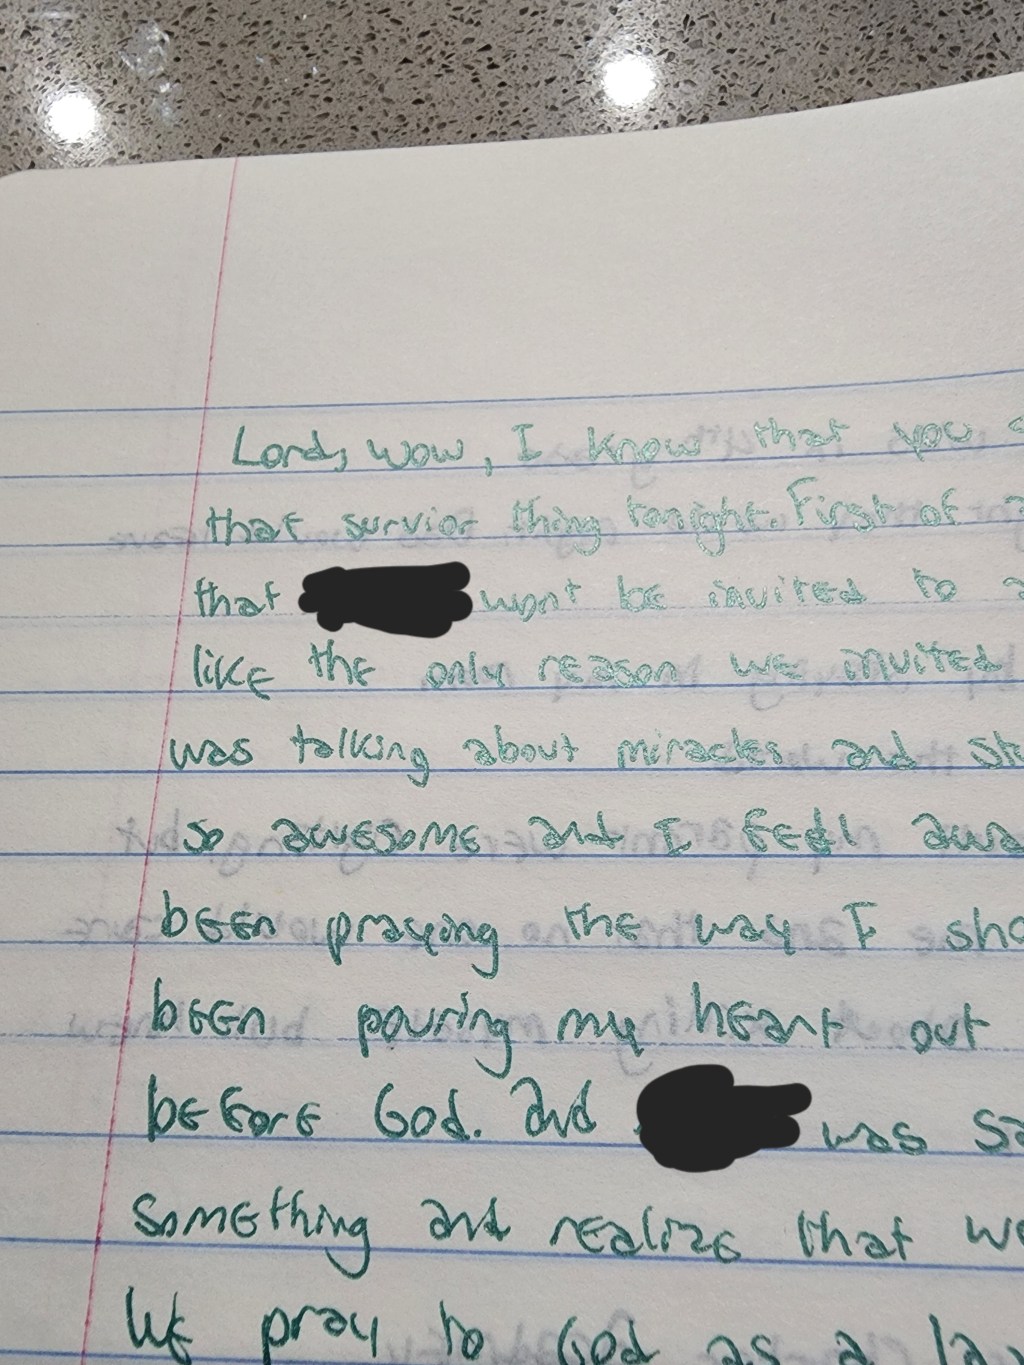 Lord, wow, I know that you
that survior thing tonight. First of
that wont be invited to a
like the only reason we invited
was talking about miracles and
so awesome and I feel
been praying the way I
been pouring my heart out
before God. and was
something and realize that
We pray to God as a